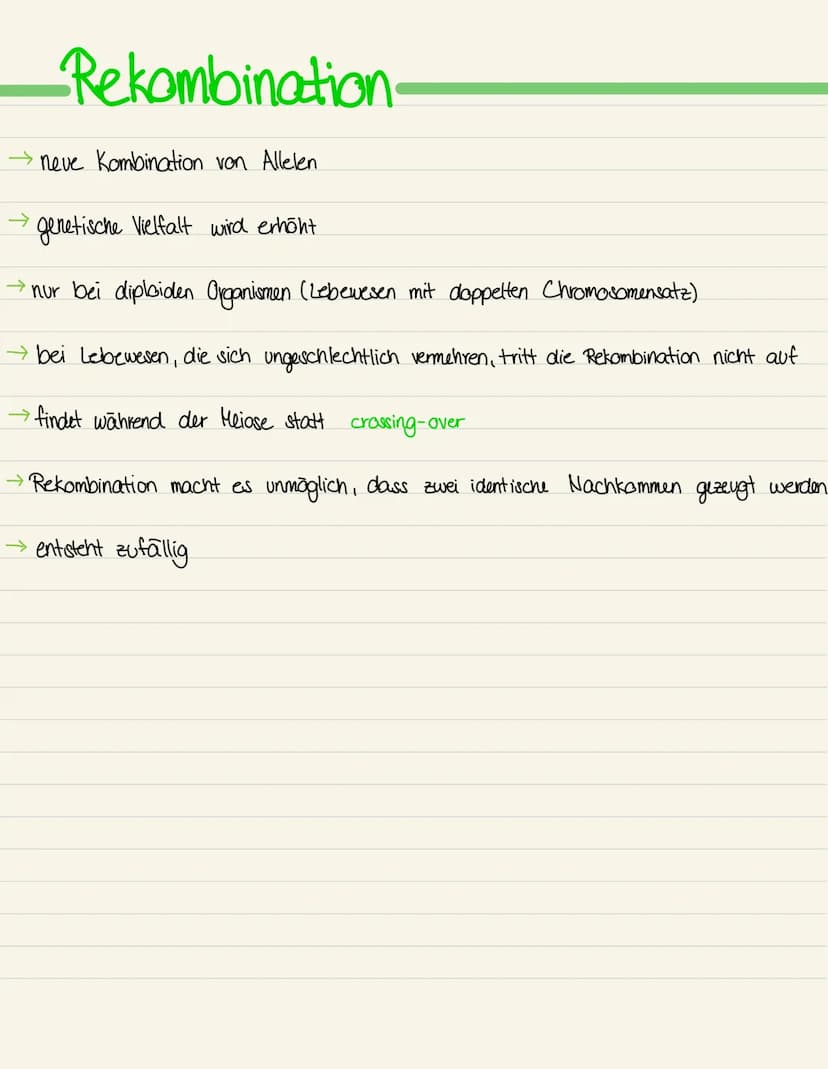 Rekombination
→ neue Kombination von Allelen
→ genetische Vielfalt wird erhöht
→ nur bei diploiden Organismen (Lebewesen mit doppelten Chromosomensatz)
→ bei Lebewesen, die sich ungeschlechtlich vermehren, tritt die Rekombination nicht auf
→ findet während der Meiose statt crossing-over
→ Rekombination macht es unmöglich, dass zwei identische Nachkommen gezeugt werden
→ entsteht zufällig